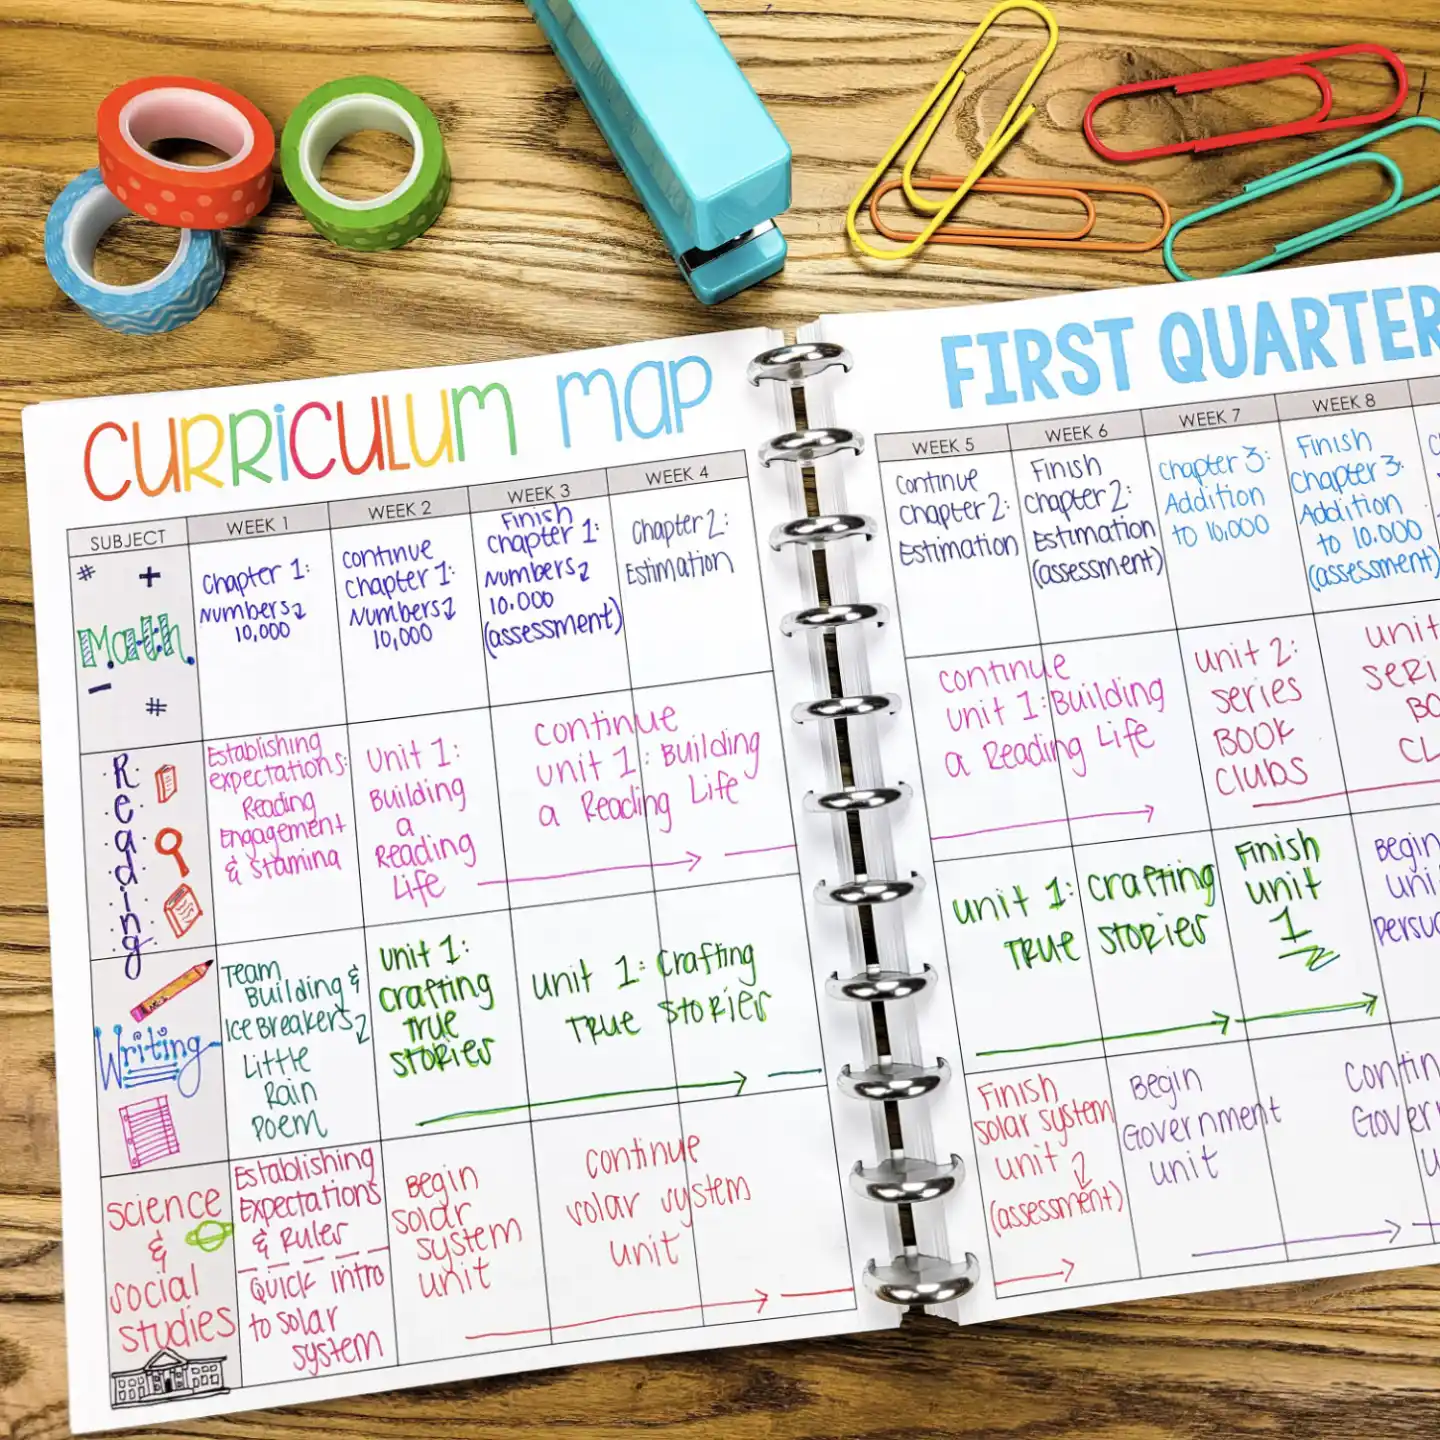 CURRICULUM MAP
FIRST QUARTER
SUBJECT
WEEK 1
WEEK 2
WEEK 3
WEEK 4
WEEK 5
WEEK 6
WEEK 7
WEEK 8
# +
Math
- #
Chapter 1:
Numbers
10,000
continue
Chapter 1:
Numbers
10,000
Finish
Chapter 1:
Numbers
10,000
(assessment)
Chapter 2:
Estimation
continue
Chapter 2:
Estimation
Finish
Chapter 2:
Estimation
(assessment)
Chapter 3:
Addition
to 10,000
Finish
Chapter 3:
Addition
to 10,000
(assessment)
Reading
Establishing
expectations:
Reading
Engagement
& Stamina
Unit 1:
Building
a
Reading
Life
continue
unit 1: Building
a Reading Life
continue
unit 1: Building
a Reading Life
unit 2:
series
BOOK
CLUBS
unit
SERI
BO
CL
Writing
Team
Building &
Ice Breakers
Little
Rain
Poem
unit 1:
crafting
True
stories
unit 1: Crafting
True Stories
unit 1: Crafting
True stories
Finish
unit
1
Begin
uni
Persu
science
&
social
studies
Establishing
Expectations
& Ruler
Quick intro
to solar
system
Begin
solar
system
unit
continue
solar system
unit
Finish
solar system
unit
(assessment)
Begin
Government
unit
Contin
Gover
u